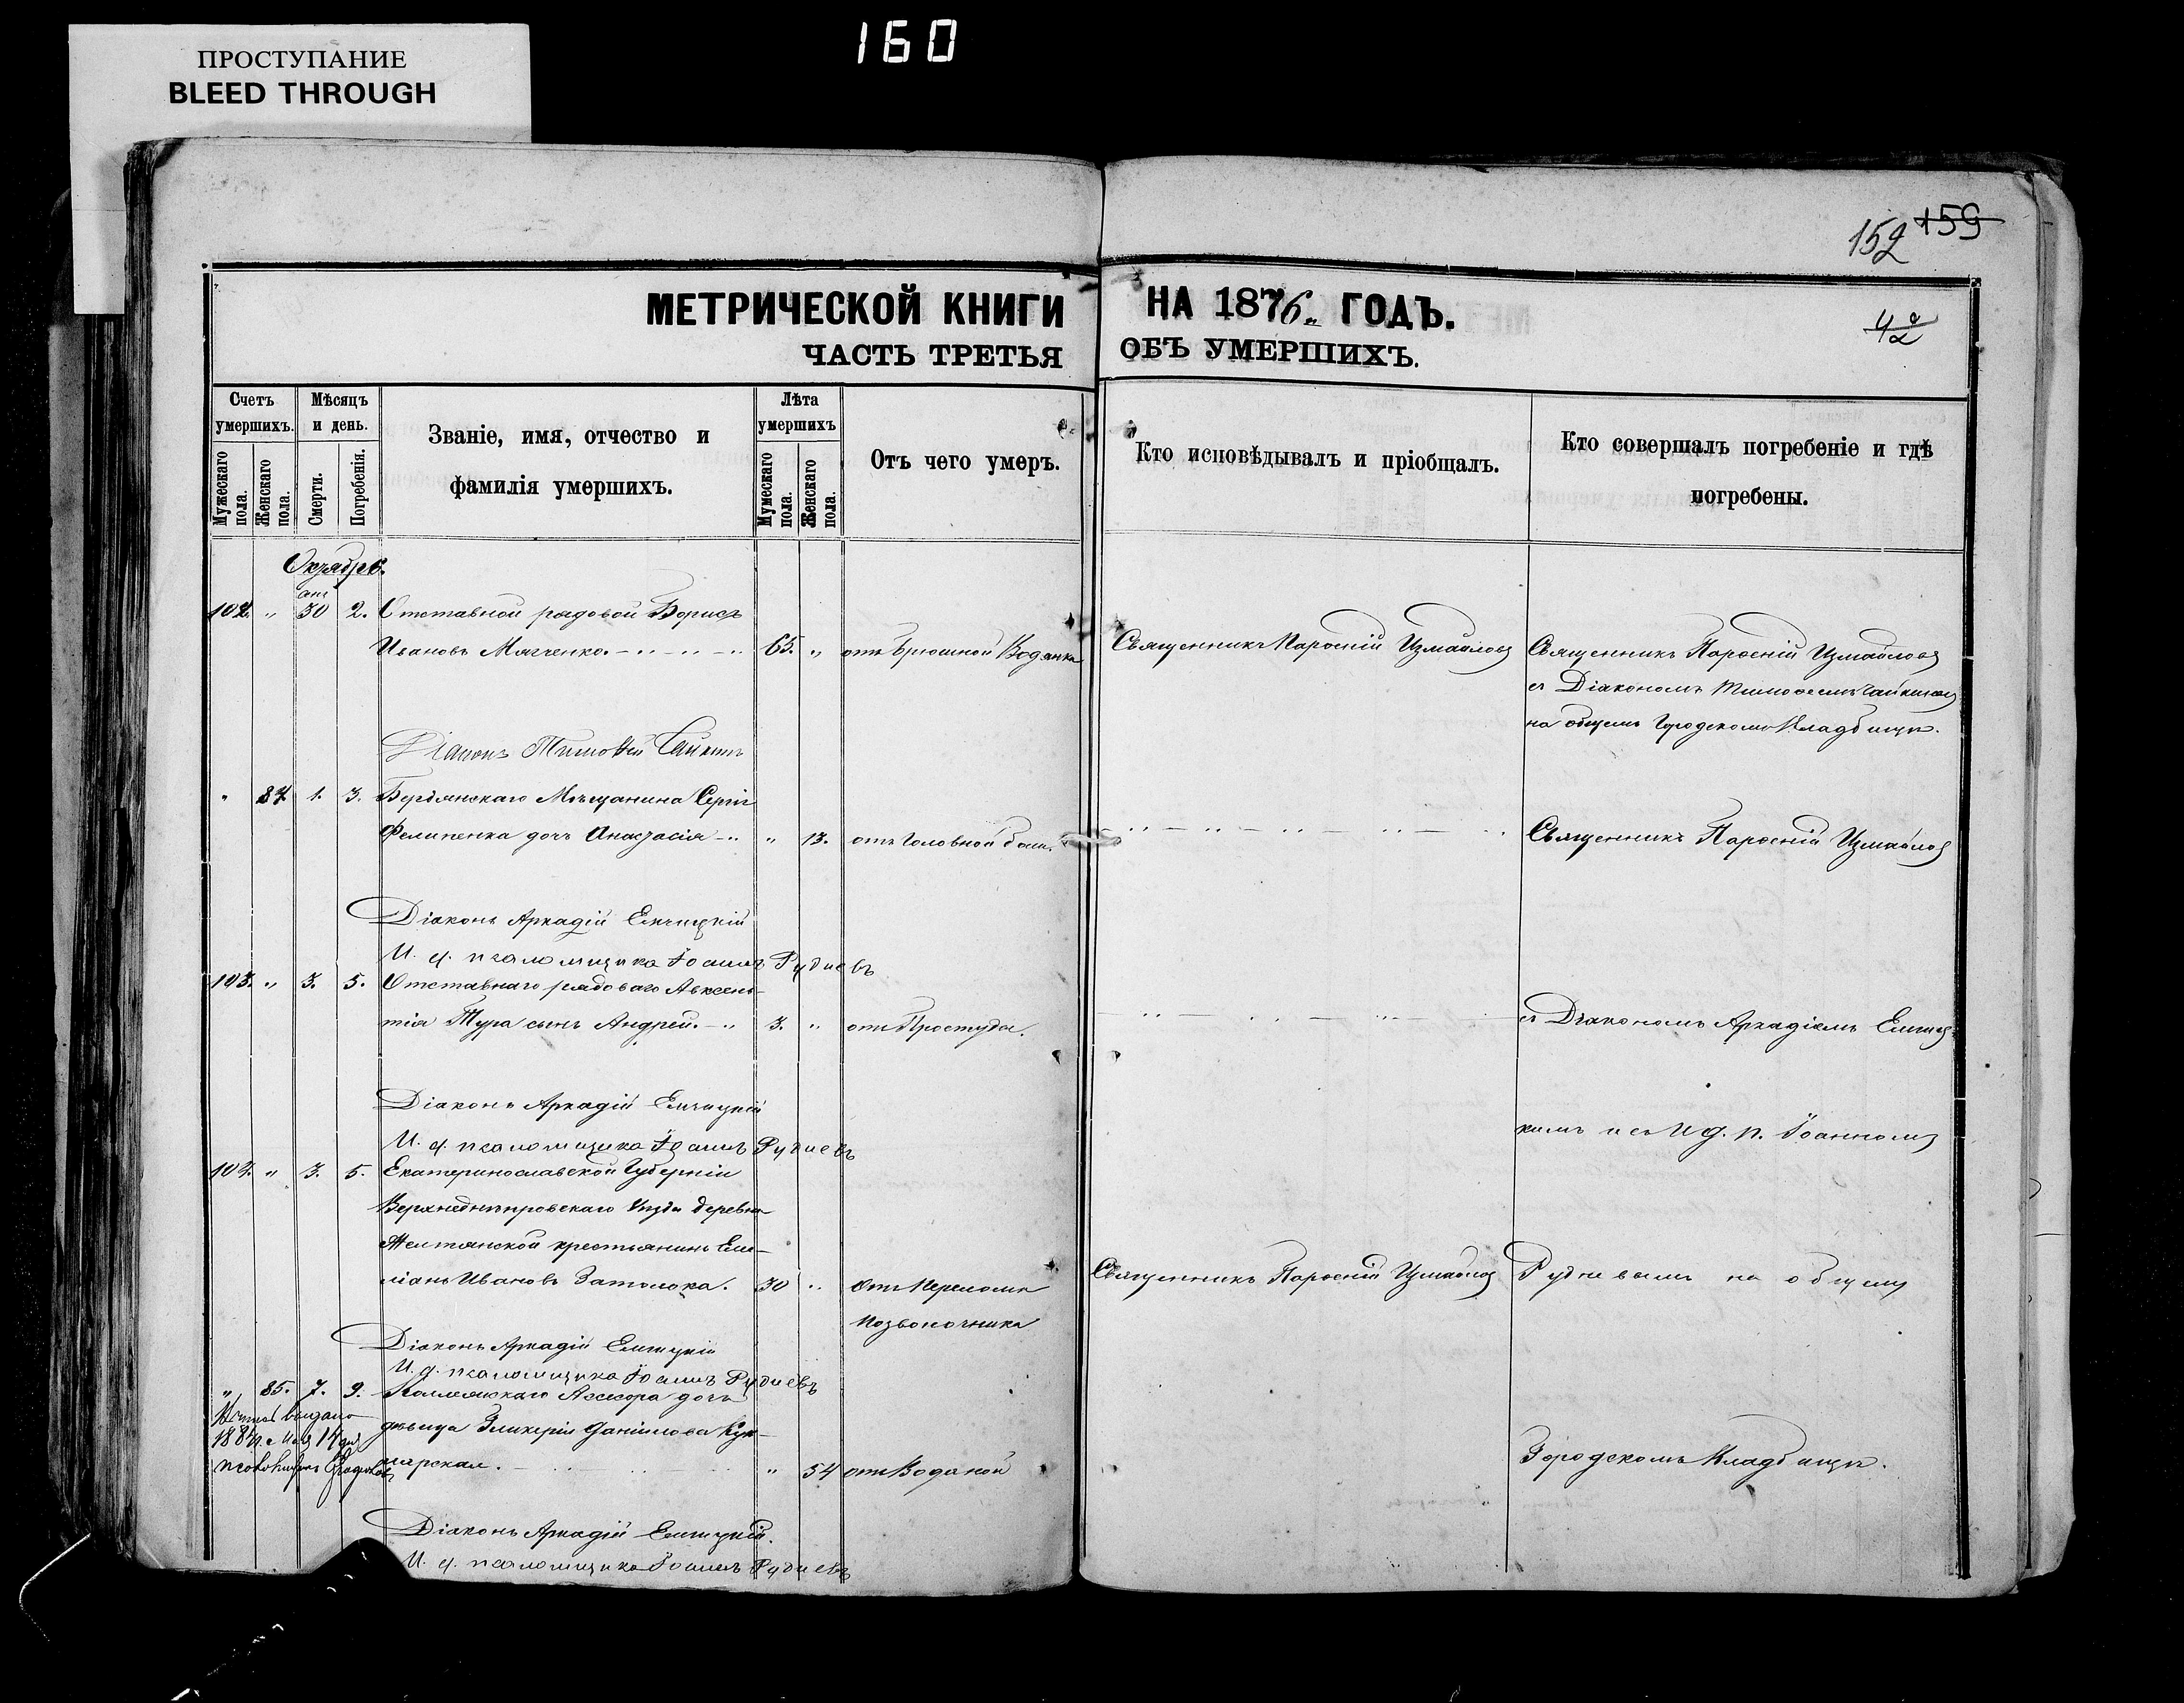 ПРОСТУПАНИЕ
BLEED THROUGH
160
152 159
МЕТРИЧЕСКОЙ КНИГИ НА 1876 ГОДЪ.
ЧАСТЬ ТРЕТЬЯ ОБЪ УМЕРШИХЪ.
Счетъ умершихъ.
Мужескаго пола.
Женскаго пола.
Мѣсяцъ и день.
Смерти.
Погребенія.
Званіе, имя, отчество и
фамилія умершихъ.
Лѣта умершихъ
Мужескаго пола.
Женскаго пола.
Отъ чего умеръ.
Кто исповѣдывалъ и пріобщалъ.
Кто совершалъ погребеніе и гдѣ
погребены.
Октябрь.
102. " 30 2. Отставной рядовой Борисъ
Ивановъ Мягченко. 65. " отъ Брюшной Водянки Священникъ Парѳеній Измайловъ Священникъ Парѳеній Измайловъ
съ Діакономъ Тимоѳеемъ
на общемъ Городскомъ Кладбищѣ.
Діаконъ Тимоѳей
" 84 1. 3. Бердянскаго Мѣщанина Сергія
дочь Анастасія " 13. отъ Головной боли. Священникъ Парѳеній Измайловъ
Діаконъ Аркадій
И. д. псаломщика Іоаннъ Рудневъ
103. " 3. 5. Отставнаго рядоваго Авксен-
тія Тура сынъ Андрей. 3. " отъ Простуды. съ Діакономъ Аркадіемъ
Діаконъ Аркадій
И. д. псаломщика Іоаннъ Рудневъ
кимъ и съ И д. п. Іоанномъ
104. " 3. 5. Екатеринославской Губерніи
Верхнеднѣпровскаго Уѣзда деревни
Желтянской крестьянинъ Еми-
ліанъ Ивановъ Затолока. 30 " отъ Перелома Священникъ Парѳеній Измайловъ Рудневымъ на общемъ
позвоночника
Діаконъ Аркадій
И. д. псаломщика Іоаннъ Рудневъ
" 85. 7. 9. Коллежскаго Асесора дочь
дѣвица Гликерія Даніилова
" 54 отъ Водяной Городскомъ Кладбищѣ.
Діаконъ Аркадій
И. д. псаломщика Іоаннъ Рудневъ